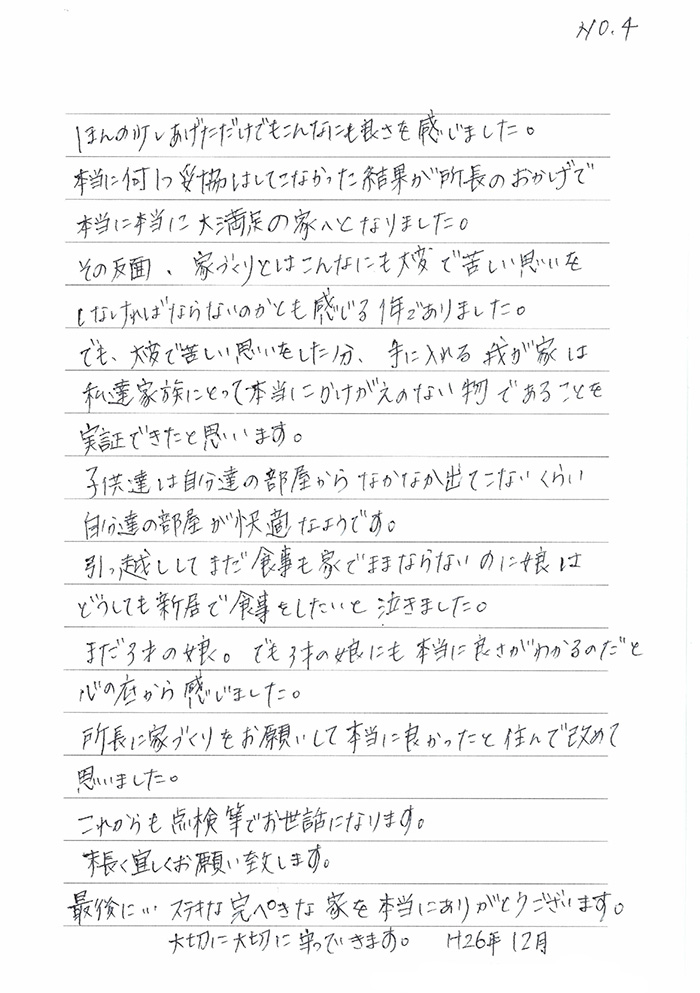 NO.4
ほんの少しあげただけでもこんなにも良さを感じました。
本当に何1つ妥協はしてこなかった結果が所長のおかげで
本当に本当に大満足の家へとなりました。
その反面、家づくりとはこんなにも大変で苦しい思いを
しなければならないのかとも感じる1年でありました。
でも、大変で苦しい思いをした分、手に入れる我が家は
私達家族にとって本当にかけがえのない物であることを
実証できたと思います。
子供達は自分達の部屋からなかなか出てこないくらい
自分達の部屋が快適なようです。
引っ越ししてまだ食事も家でままならないのに娘は
どうしても新居で食事をしたいと泣きました。
まだ3才の娘。でも3才の娘にも本当に良さがわかるのだと
心の底から感じました。
所長に家づくりをお願いして本当に良かったと住んで改めて
思いました。
これからも点検等でお世話になります。
末長く宜しくお願い致します。
最後に… ステキな完ぺきな家を本当にありがとうございます。
大切に大切に守っていきます。 H26年12月